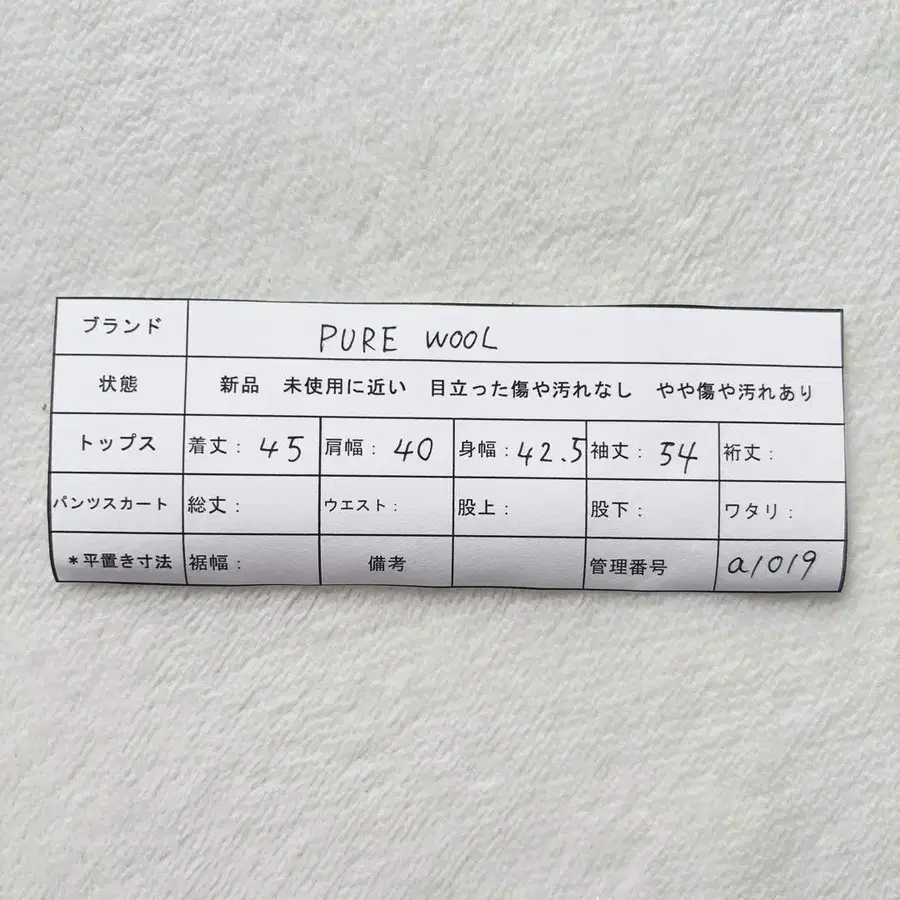 ブランド PURE WOOL
状態 新品 未使用に近い 目立った傷や汚れなし やや傷や汚れあり
トップス 着丈: 45 肩幅: 40 身幅: 42.5 袖丈: 54 裄丈:
パンツスカート 総丈: ウエスト: 股上: 股下: ワタリ:
*平置き寸法 裾幅: 備考 管理番号 a1019